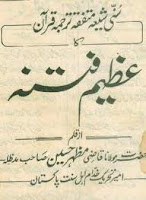 سنی شیعہ متفقہ ترجمہ قرآن
کا
عظیم فتنہ
از قلم
حضرت مولانا قاضی مظہر حسین صاحب مدظلہ
امیر تحریک خدام اہل سنت پاکستان